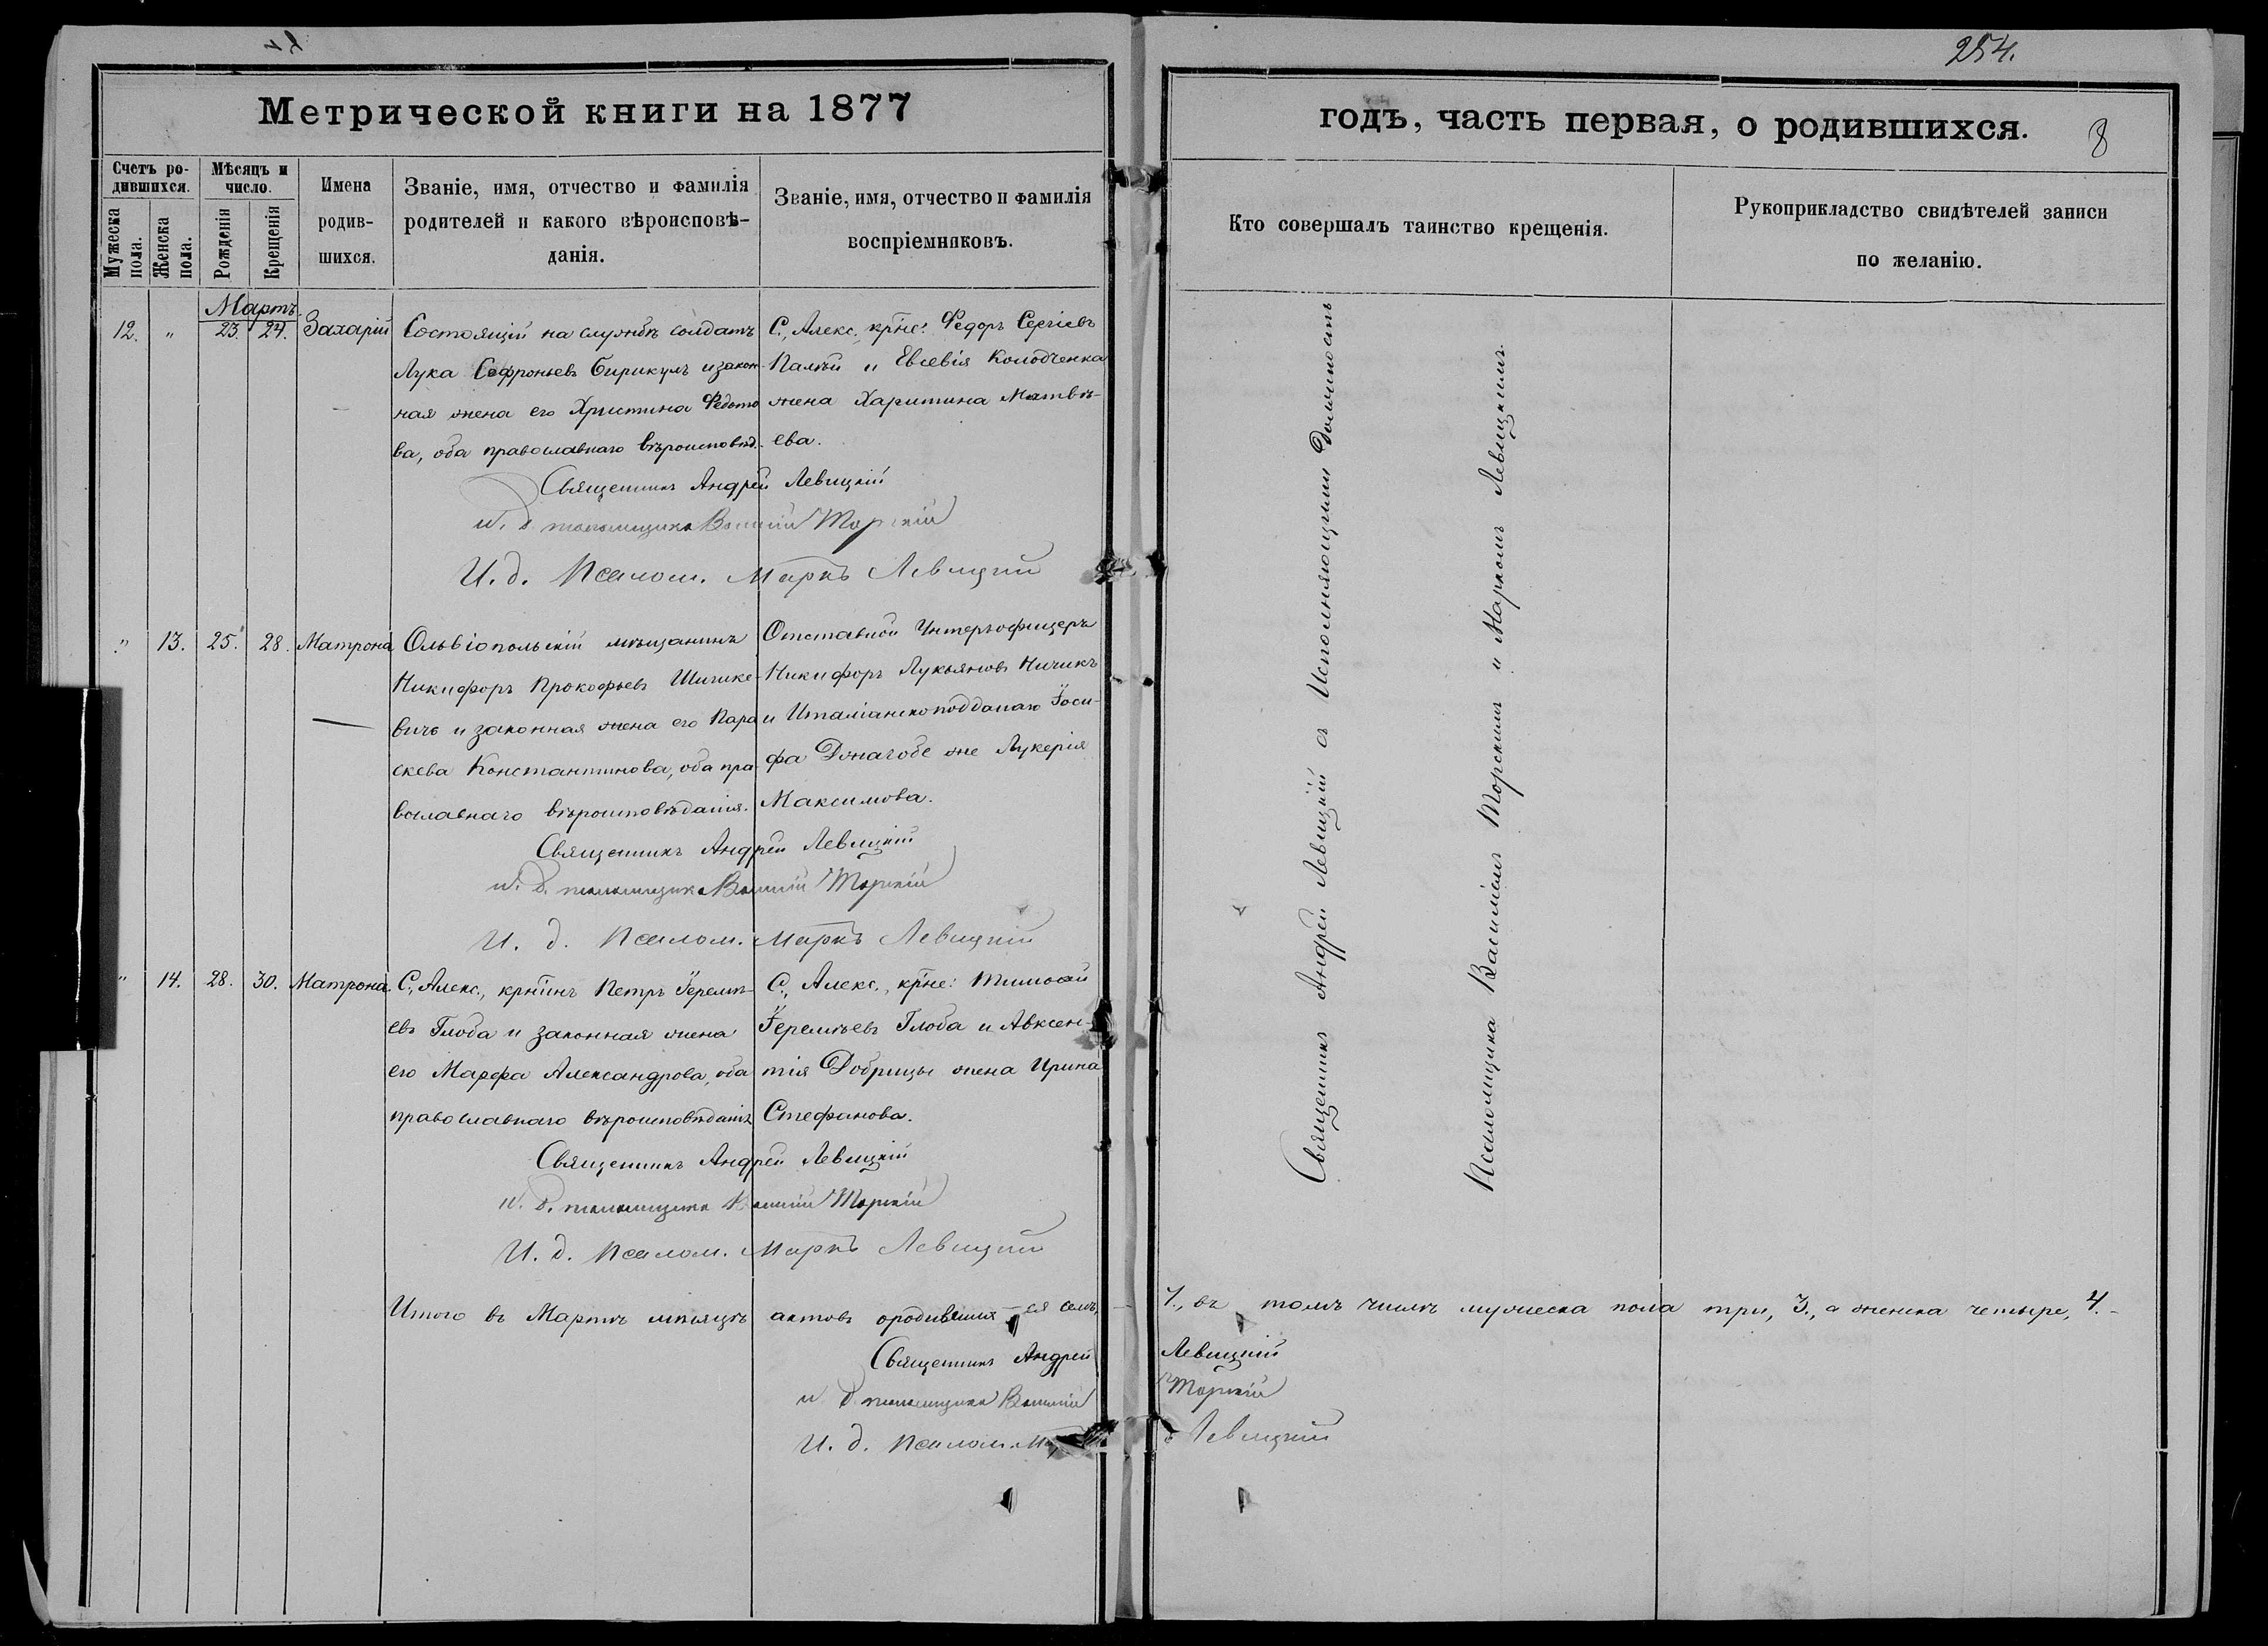 254.
8
Метрической книги на 1877
годъ, часть первая, о родившихся.
Счетъ ро-
дившихся.
Мужеска
пола.
Женска
пола.
Мѣсяцъ и
число.
Рожденія
Крещенія
Имена
родив-
шихся.
Званіе, имя, отчество и фамилія
родителей и какого вѣроисповѣ-
данія.
Званіе, имя, отчество и фамилія
воспріемниковъ.
Кто совершалъ таинство крещенія.
Рукоприкладство свидѣтелей записи
по желанію.
Мартъ
12.
"
23.
24.
Захарій
Состоящій на службѣ солдатъ
Лука Софроньевъ Бирикулъ и закон-
ная жена его Христина Федото
ва, оба православнаго вѣроисповѣд.
С. Алекс. крне: Федоръ Сергіевъ
Палѣй и Евсевія Колодченка
жена Харитина Матвѣ-
ева.
Священникъ Андрей Левицкій
и. д. псаломщика Василій Торскій
И. д. Псалом. Маркъ Левицкій
"
13.
25.
28.
Матрона
Ольвіопольскій мѣщанинъ
Никифоръ Прокофьевъ Шичке-
вичъ и законная жена его Пара
скева Константинова, оба пра-
вославнаго вѣроисповѣданія.
Отставной Унтеръофицеръ
Никифоръ Лукьяновъ Ничикъ
и Италіанскоподданаго Іоси-
фа Джагобе же Лукерія
Максимова.
Священникъ Андрей Левицкій
и. д. псаломщика Василій Торскій
И. д. Псалом. Маркъ Левицкій
"
14.
28.
30.
Матрона.
С. Алекс., крнтинъ Петръ Іеремѣ-
евъ Глоба и законная жена
его Марфа Александрова, оба
православнаго вѣроисповѣданія
С. Алекс., крне: Тимофей
Іеремѣевъ Глоба и Авксен-
тія Добрицы жена Ирина
Стефанова.
Священникъ Андрей Левицкій
и. д. псаломщика Василій Торскій
И. д. Псалом. Маркъ Левицкій
Священникъ Андрей Левицкій съ Исполняющими Должность
Псаломщика Василіемъ Торскимъ и Маркомъ Левицкимъ.
Итого въ Мартѣ мѣсяцѣ актовъ о родившихся семь, 7., въ томъ числѣ мужеска пола три, 3., а женска четыре, 4.-
Священникъ Андрей Левицкій
и д. псаломщика Василій Торскій
И. д. Псалом. Левицкій